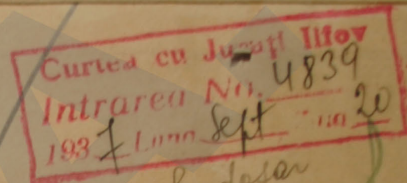 Curtea cu Jurați Ilfov
Intrarea No. 4839
1937 Luna Sept 20